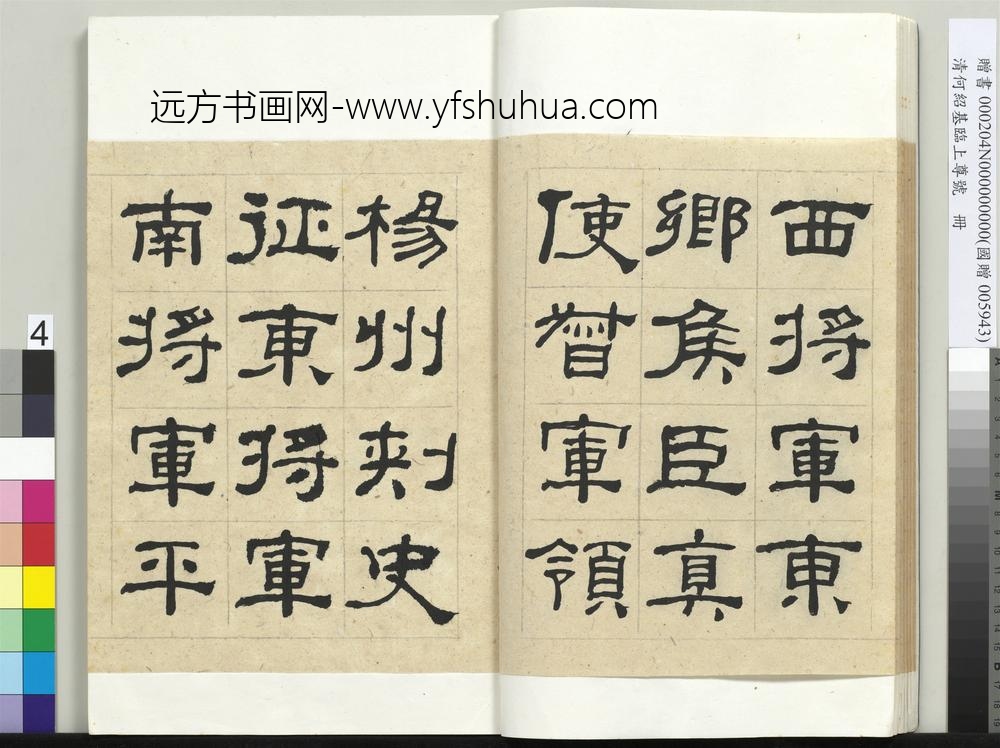 远方书画网-www.yfshuhua.com
西将軍東
鄉侯臣真
使督軍領
楊州刾史
征東将軍
南将軍平
贈書 000204N000000000(國贈 005943)
清何紹基臨上尊號 冊
4